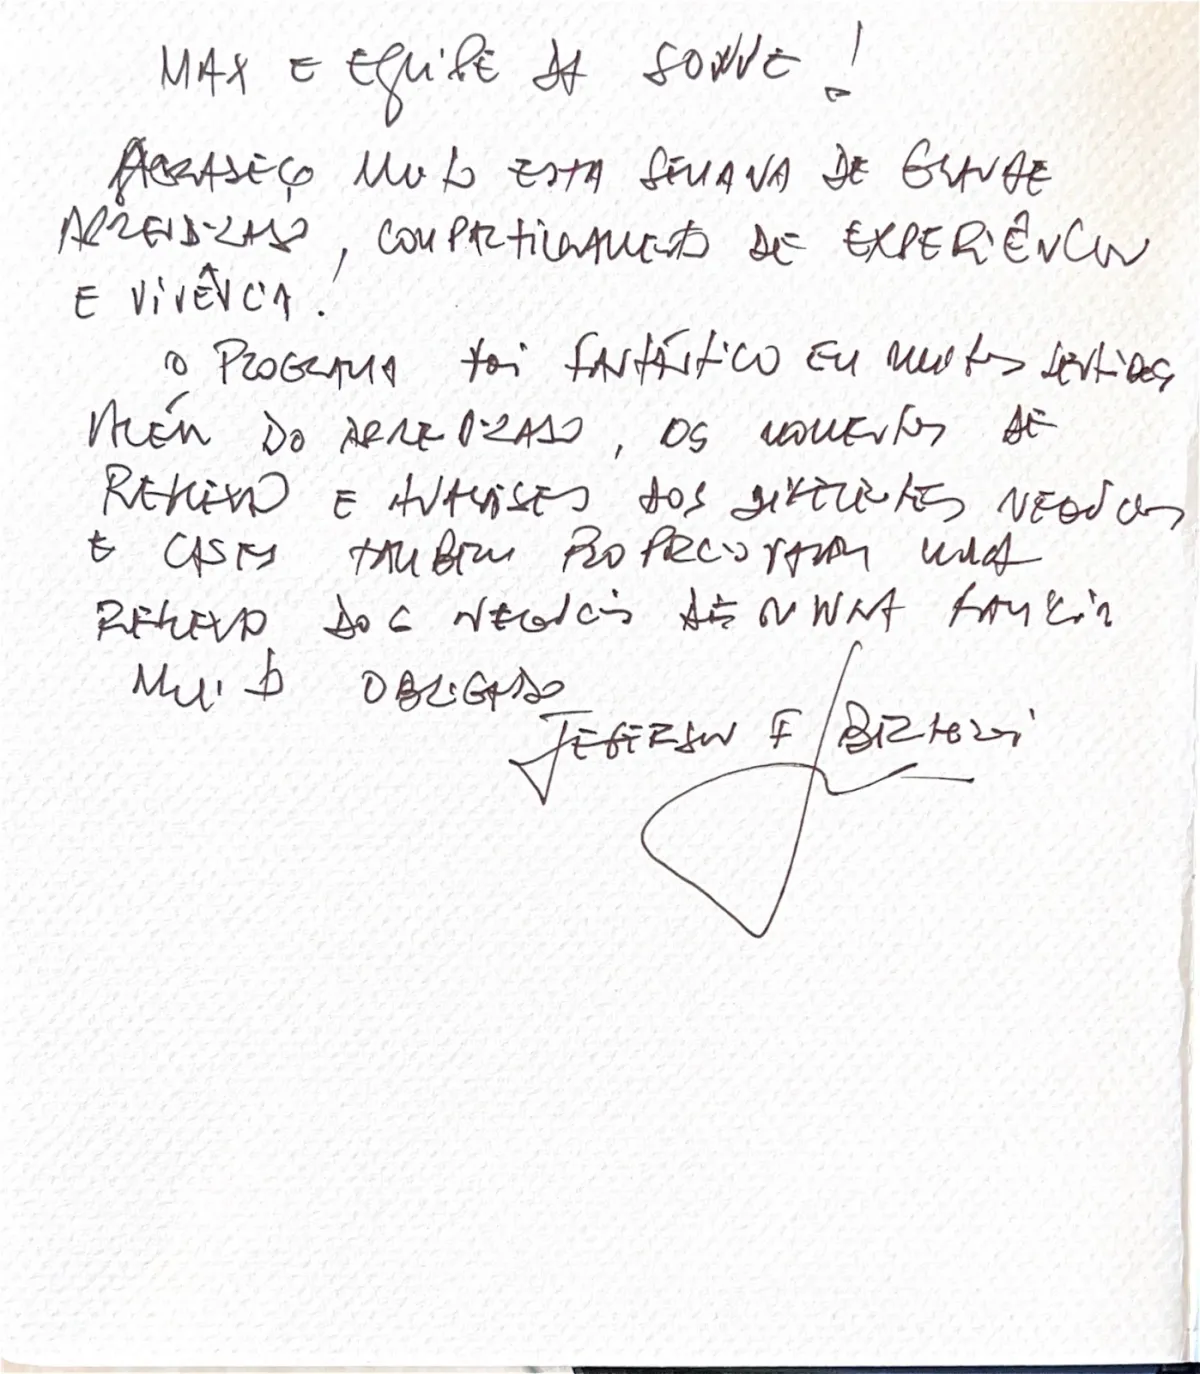 MAX E EQUIPE DA SONNE!
AGRADEÇO MUITO ESTA SEMANA DE GRANDE
APRENDIZADO, COMPARTILHAMENTO DE EXPERIÊNCIA
E VIVÊNCIA.
O PROGRAMA foi FANTÁSTICO EM MUITOS SENTIDOS
ALÉM DO APRENDIZADO, OS MOMENTOS DE
REFLEXÃO E ANALISES DOS DIFERENTES NEGÓCIOS
E CASES TAMBÉM PROPORCIONARAM UMA
REFLEXÃO DOS NEGÓCIOS DE MINHA FAMÍLIA
MUITO OBRIGADO
JEFERSON F